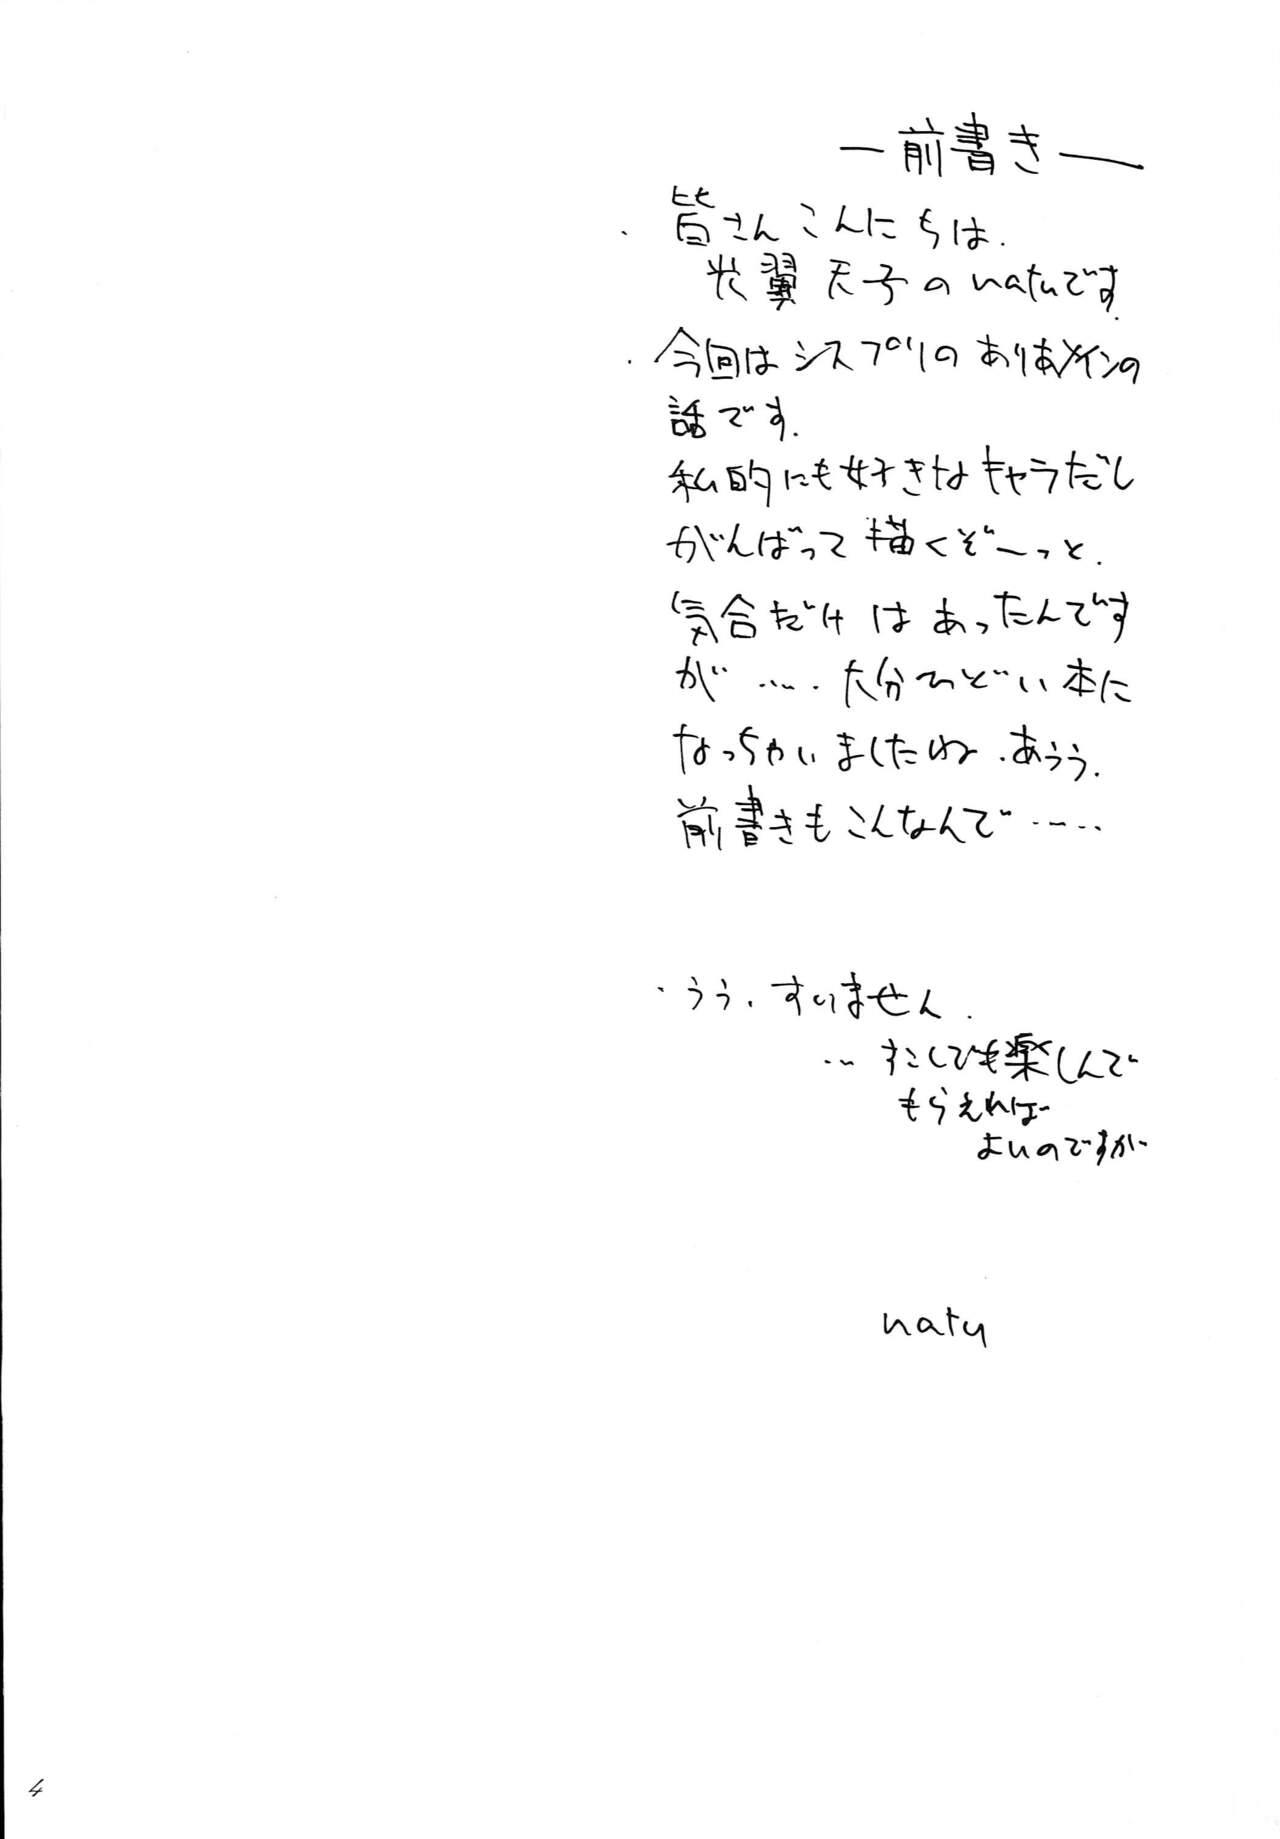 ー前書きー
・皆さんこんにちは.
光翼天子のnatuです.
・今回はシスプリのありあメインの
話です.
私的にも好きなキャラだし
がんばって描くぞーっと.
気合だけはあったんです
が……大分ひどい本に
なっちゃいましたね.あうう.
前書きもこんなんで……
・うう.すいません.
…すこしでも楽しんで
もらえれば
よいのですが
natu
4